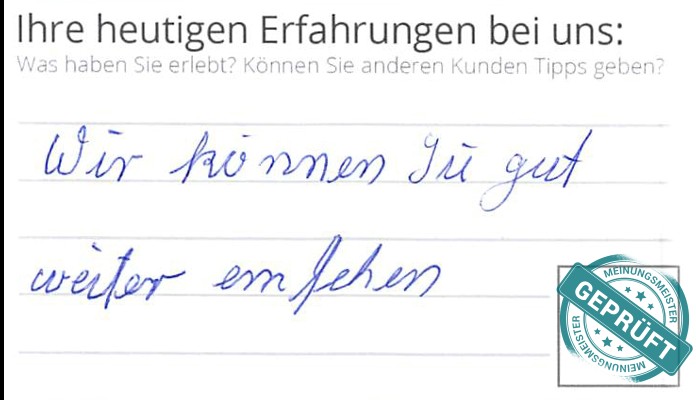 Ihre heutigen Erfahrungen bei uns:
Was haben Sie erlebt? Können Sie anderen Kunden Tipps geben?
Wir können Sie gut
weiter emfehen
MEINUNGSMEISTER
GEPRÜFT
MEINUNGSMEISTER